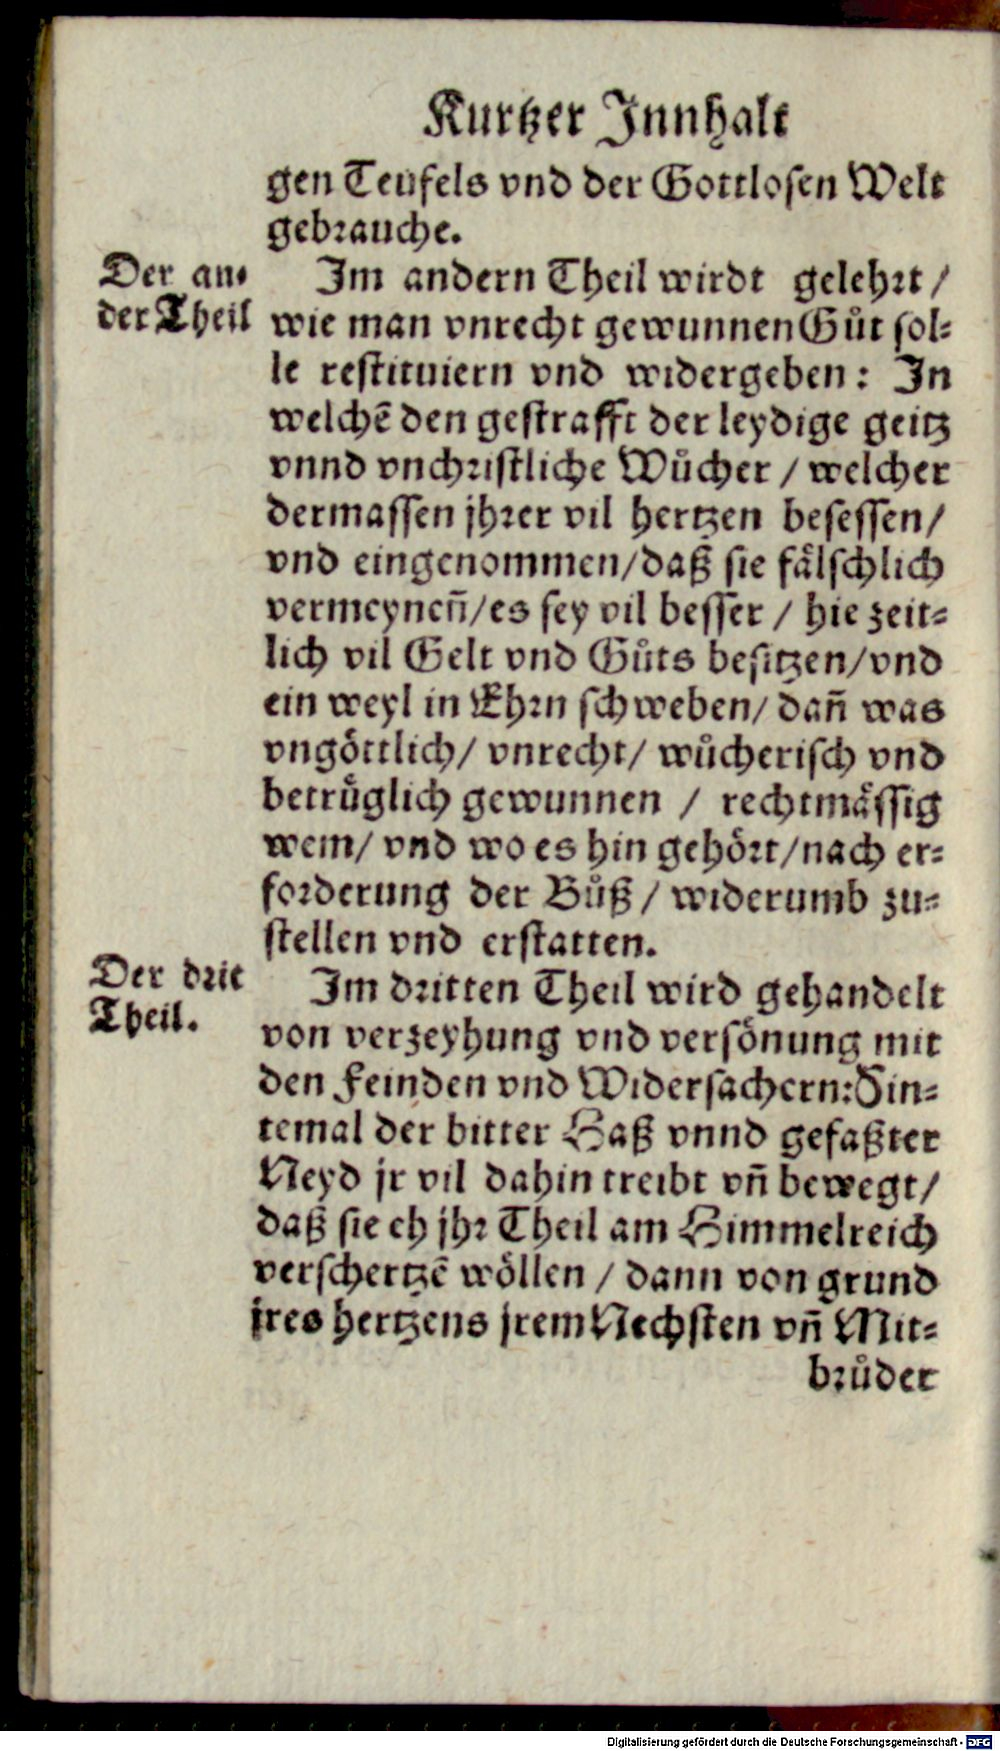 Kurtzer Innhalt
gen Teufels vnd der Gottlosen Welt
gebrauche.
Der an-
der Theil
Im andern Theil wirdt gelehrt /
wie man vnrecht gewunnen Gůt sol-
le restituiern vnd widergeben: In
welchē den gestrafft der leydige geitz
vnnd vnchristliche Wůcher / welcher
dermassen jhrer vil hertzen besessen/
vnd eingenommen/daß sie fälschlich
vermeyneñ/es sey vil besser / hie zeit-
lich vil Gelt vnd Gůts besitzen/vnd
ein weyl in Ehrn schweben/ dañ was
vngöttlich/ vnrecht/ wůcherisch vnd
betrüglich gewunnen / rechtmässig
wem/ vnd wo es hin gehört/nach er-
forderung der Bůß / widerumb zu-
stellen vnd erstatten.
Der drit
Theil.
Im dritten Theil wird gehandelt
von verzeyhung vnd versönung mit
den Feinden vnd Widersachern: Sin-
temal der bitter Haß vnnd gefaßter
Neyd jr vil dahin treibt vñ bewegt/
daß sie eh jhr Theil am Himmelreich
verschertzē wöllen / dann von grund
jres hertzens jrem Nechsten vñ Mit-
brůder
Digitalisierung gefördert durch die Deutsche Forschungsgemeinschaft - DFG